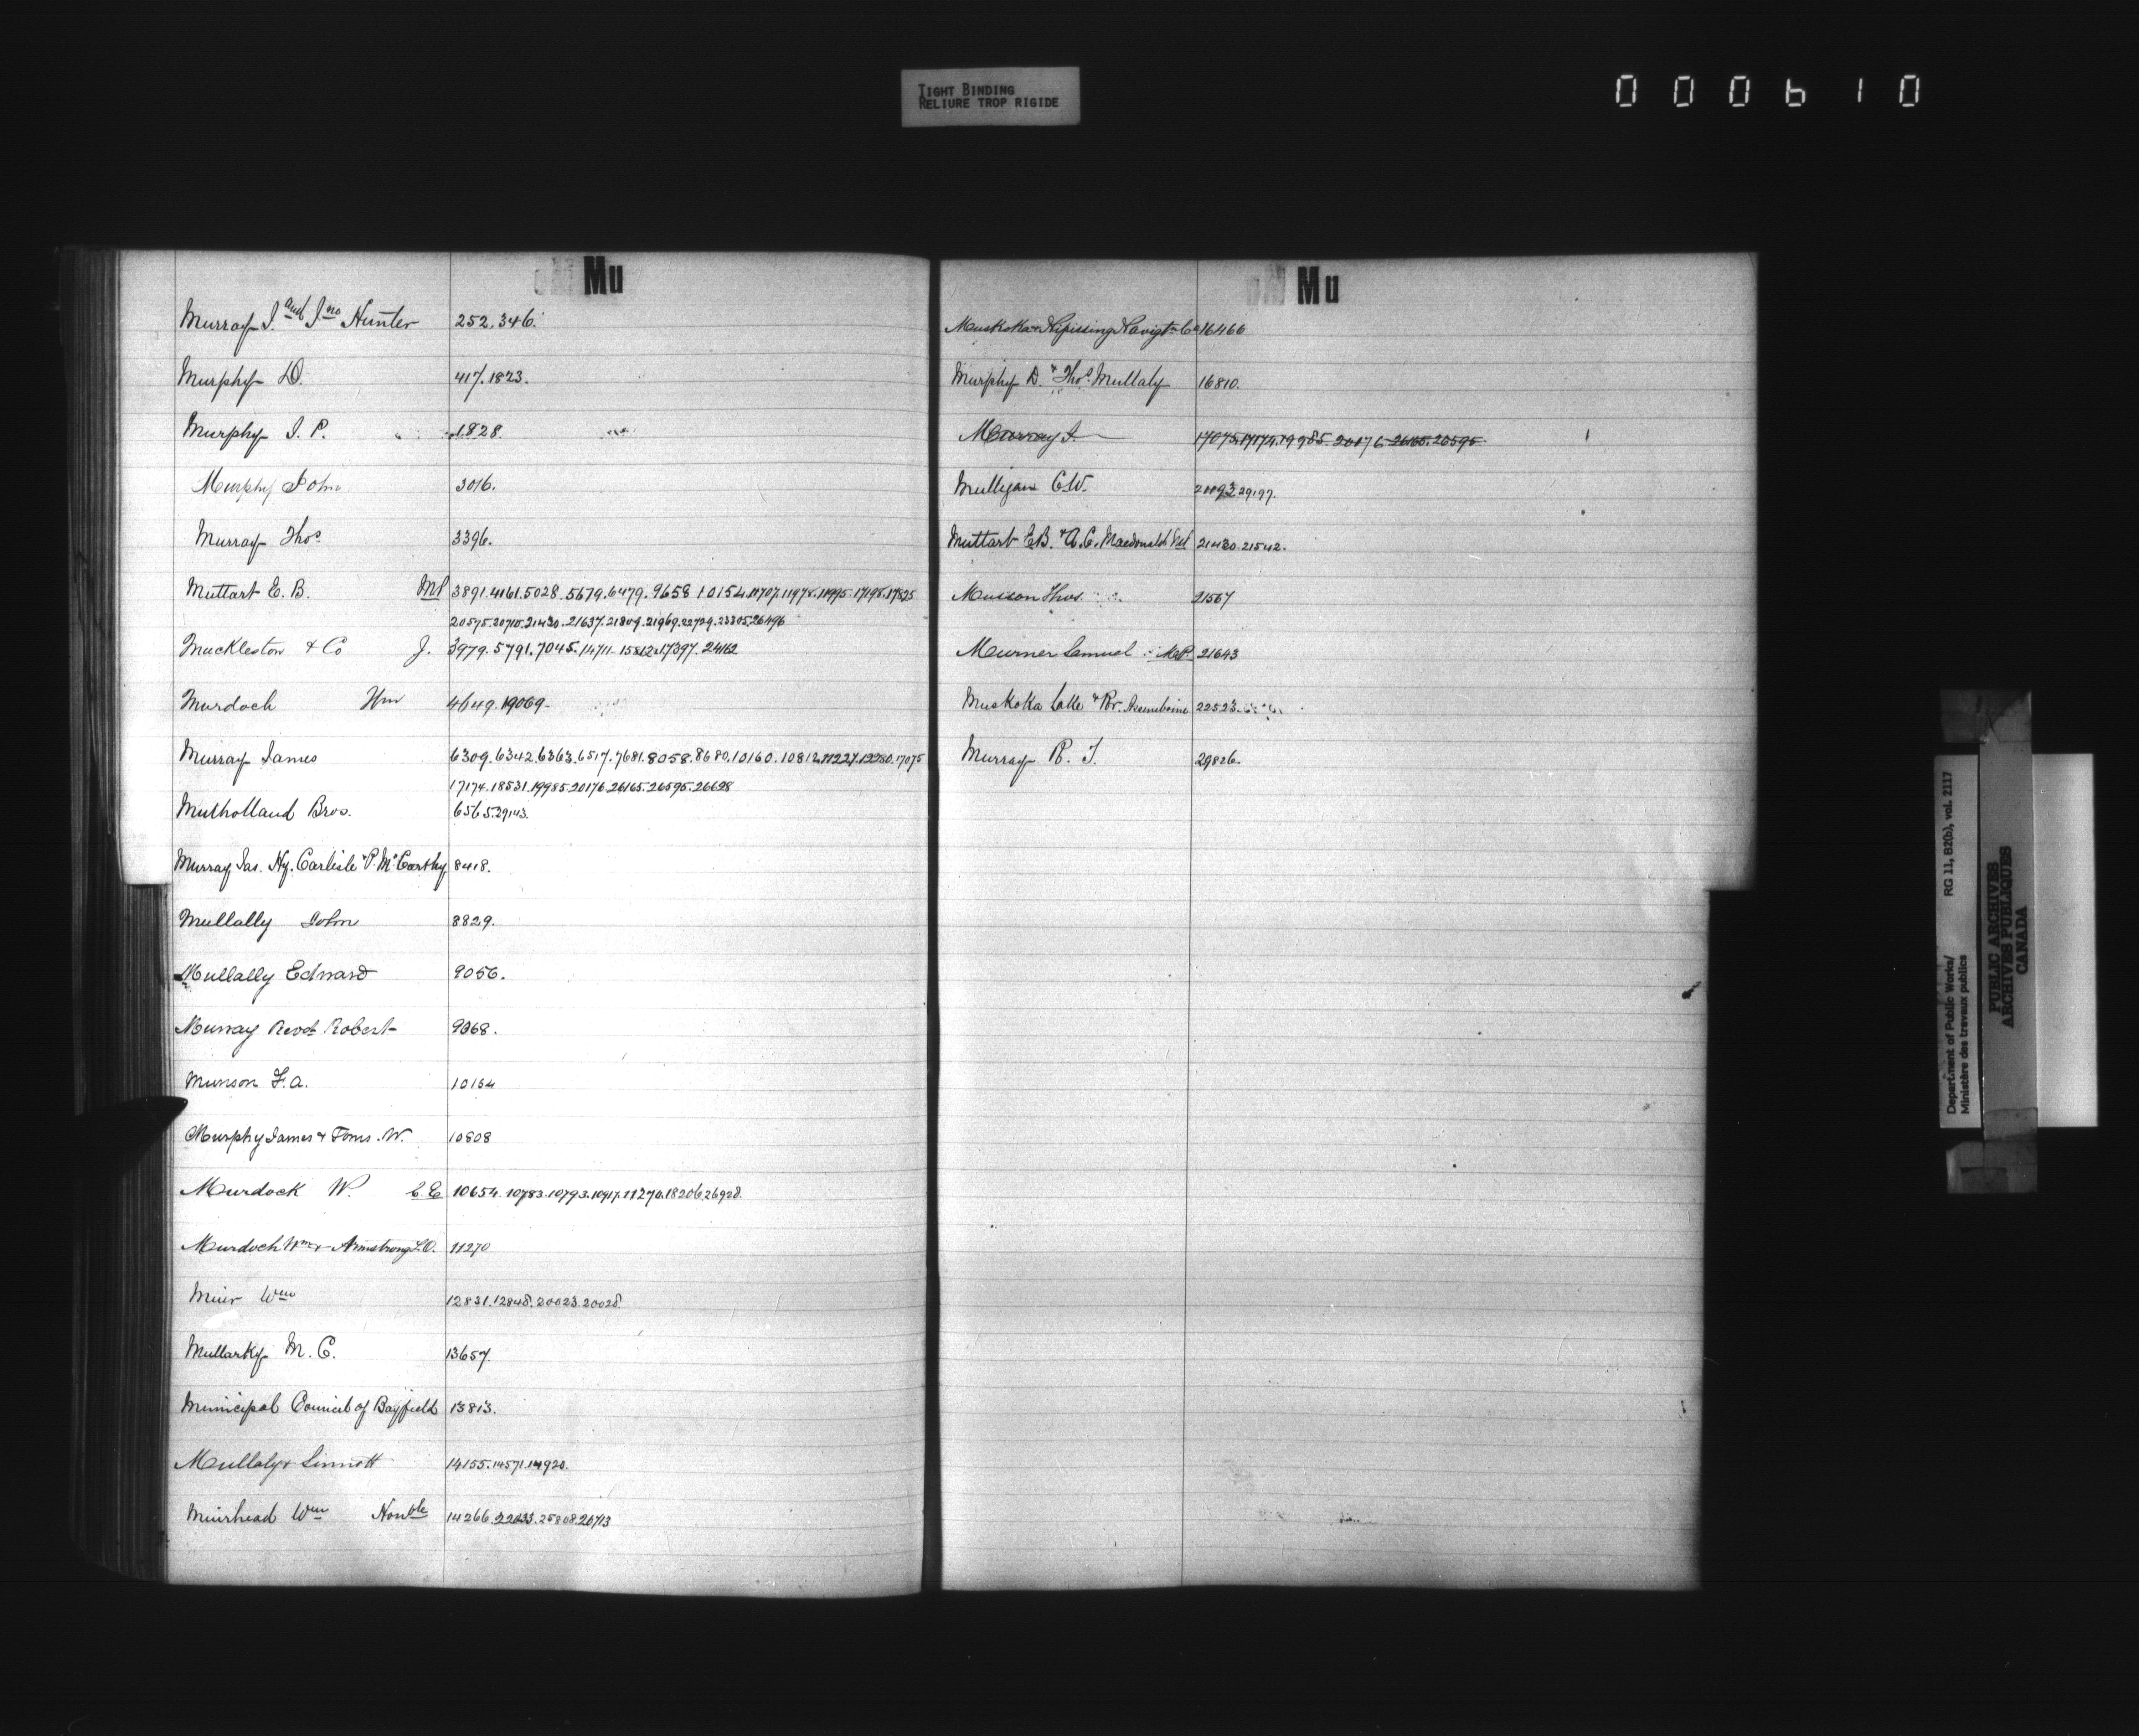 TIGHT BINDING
RELIURE TROP RIGIDE
000610
Mu
Murray J. and Jno Hunter 252.346.
Murphy D. 417.1823.
Murphy J. P. 1828
Murphy John 3016.
Murray Thos 3396.
Muttart E. B. MP 3891.4161.5028.5679.6479.9658 10154.11707.11978.11995.17198.17825
20575.20710.21430.21637.21809.21969.22729.23305.26496
Muckleston & Co J. 3979.5791.7045.14711.15812.17397.24162
Murdoch Wm 4649.19069.
Murray James 6309.6342.6363.6517.7681.8058.8680.10160.10812.11227.12280.17075
17174.18531.19985.20176.26165.26595.26628
Mulholland Bros. 6565.29143.
Murray Jas. Hy. Carlisle & P. McCarthy 8418.
Mullally John 8829.
Mullally Edward 9056.
Murray Revd Robert 9368.
Munson F. A. 10164
Murphy James & Toms. W. 10808
Murdock W. C.E 10654.10783.10793.10917.11270.18206.26928.
Murdoch Wm & Armstrong L.O. 11270
Muir Wm 12831.12848.20023.20028
Mullarky M. C. 13657.
Municipal Council of Bayfield 13813.
Mullaly & Sinnott 14155.14571.14920.
Muirhead Wm Honble 14266.22033.25808.26713
Mu
Muskoka & Nipissing Navigtn Co 16466
Murphy D. & Thos Mullaly 16810.
Murray J. 17075.17174.19985.20176.26165.26595.
Mulligan C.W. 21093.29197.
Muttart E.B. & A.C. Macdonald 21430.21542.
Musson Thos. 21567
Murner Samuel M.P. 21643
Muskoka Lake & Rr. Assineboine 22523.
Murray R. T. 29826.
Department of Public Works/ RG 11, B2(b), vol. 2117
Ministère des travaux publics
PUBLIC ARCHIVES
ARCHIVES PUBLIQUES
CANADA